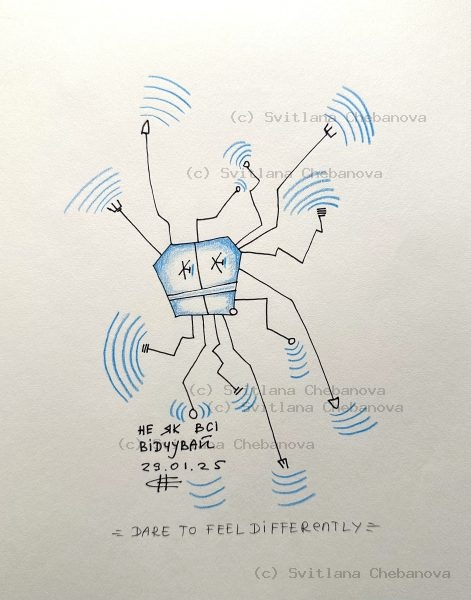 (c) Svitlana Chebanova
(c) Svitlana Chebanova
(c) Svitlana Chebanova
(c) Svitlana Chebanova
НЕ ЯК ВСІ
ВІДЧУВАЙ
(c) Svitlana Chebanova
29.01.25
= DARE TO FEEL DIFFERENTLY =
(c) Svitlana Chebanova